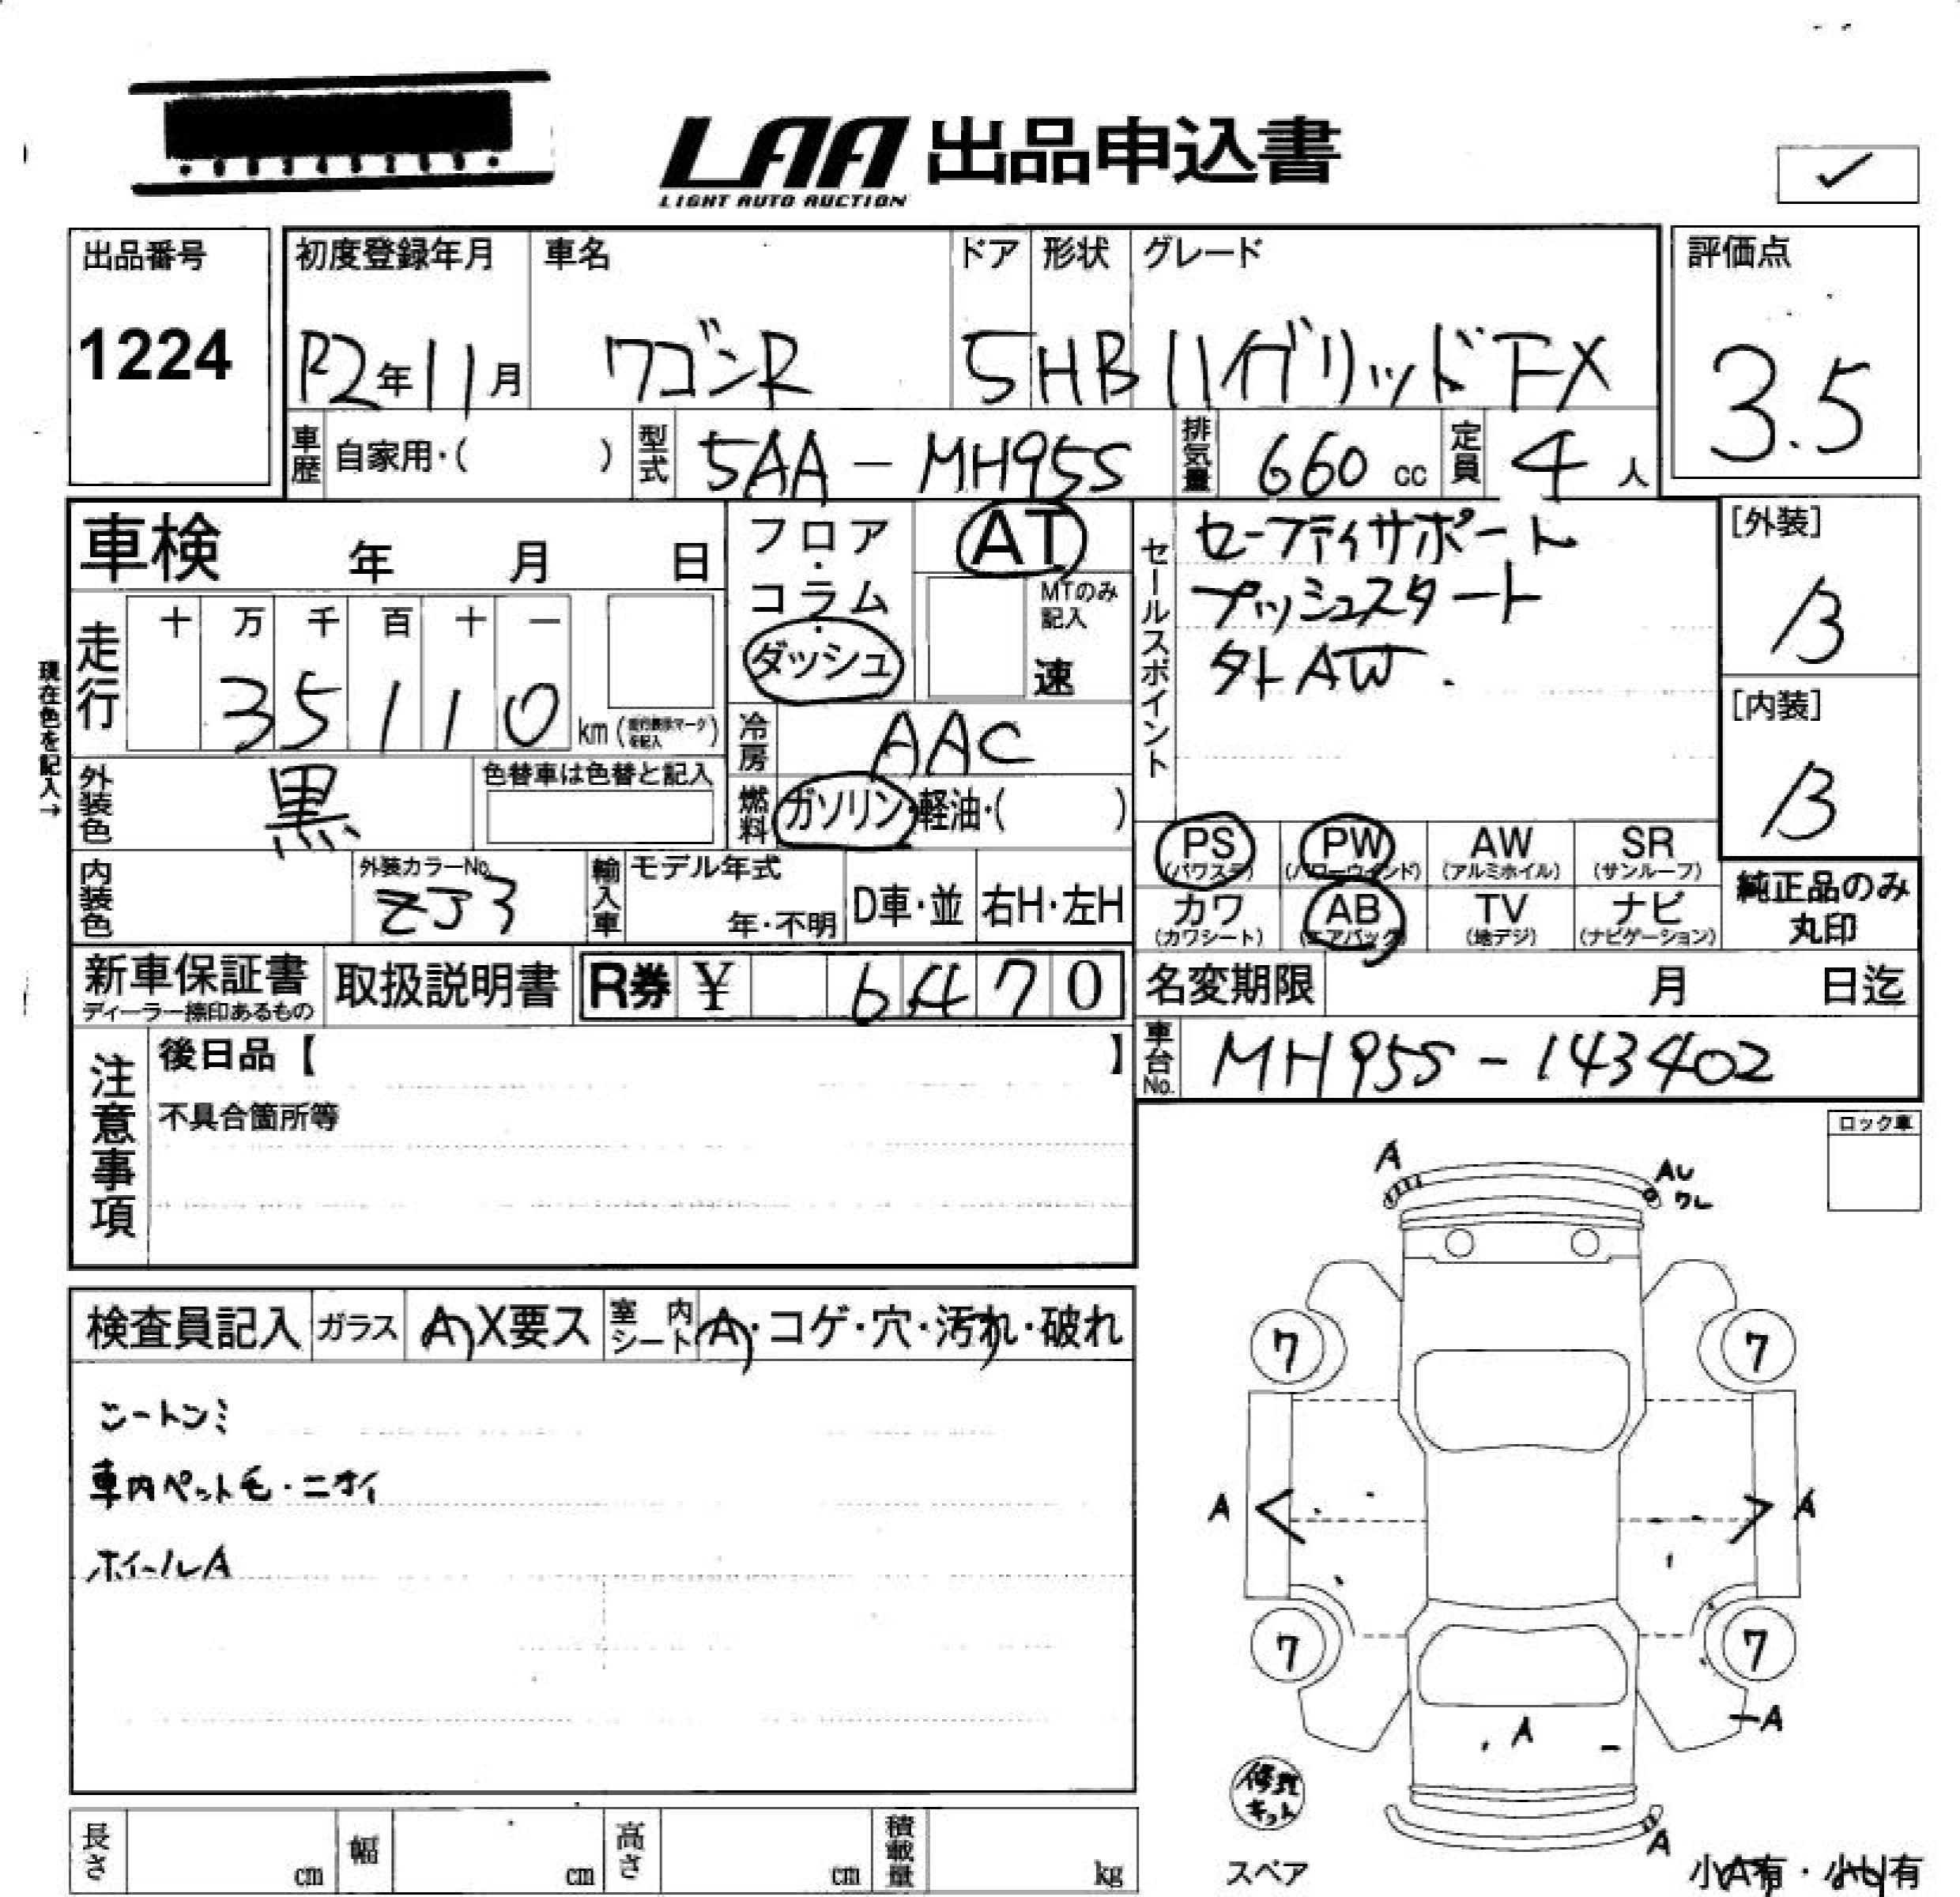 LAA 出品申込書
LIGHT AUTO AUCTION
出品番号
1224
初度登録年月
R2年11月
車名
ワゴンR
ドア
5
形状
HB
グレード
ハイブリッドFX
評価点
3.5
車歴
自家用・( )
型式
5AA-MH95S
排気量
660 cc
定員
4 人
車検 年 月 日
走行
十 万 千 百 十 一
3 5 1 1 0 km
現在色を記入→
フロア・コラム・ダッシュ
AT
MTのみ記入
速
冷房
AAC
燃料
ガソリン・軽油・( )
外装色
黒
色替車は色替と記入
内装色
外装カラーNo.
ZJ3
輸入車
モデル年式
年・不明
D車・並
右H・左H
セールスポイント
セーフティサポート
プッシュスタート
タトAW.
[外装]
B
[内装]
B
PS
(パワステ)
PW
(パワーウインド)
AW
(アルミホイル)
SR
(サンルーフ)
カワ
(カワシート)
AB
(エアバッグ)
TV
(地デジ)
ナビ
(ナビゲーション)
純正品のみ
丸印
新車保証書
ディーラー捺印あるもの
取扱説明書
R券 ¥ 6470
名変期限 月 日迄
車台No.
MH95S-143402
注意事項
後日品【 】
不具合箇所等
ロック車
検査員記入
ガラス
A X要ス
室内シート
A・コゲ・穴・汚れ・破れ
車内ペット毛・ニオイ
ホイールA
A
AU
ワレ
7
7
A
A
7
7
A
A
A
修理キット
スペア
小A有・小U有
長さ cm
幅 cm
高さ cm
積載量 kg